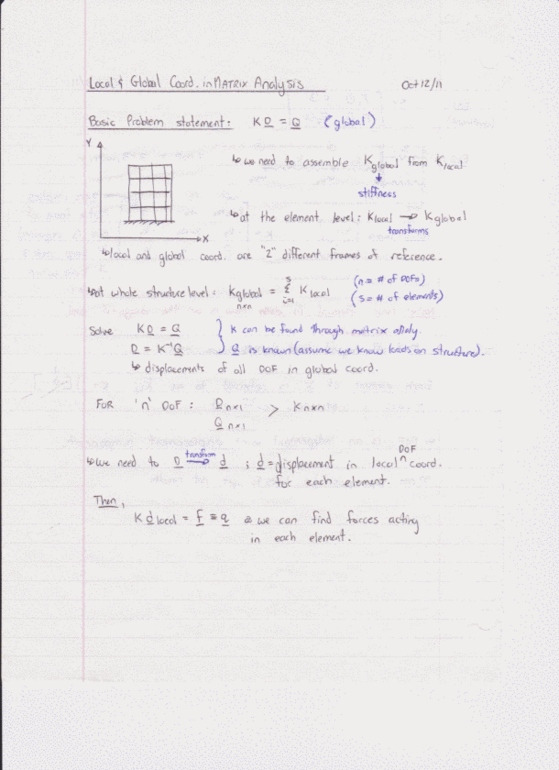 Local & Global Coord. in MATRIX Analysis Oct 12/11
Basic Problem statement: K D = Q (global)
Y
↳ we need to assemble Kglobal from Klocal
stiffness
↳ at the element level: Klocal → Kglobal
transforms
X
↳ local and global coord. are "2" different frames of reference.
↳ at whole structure level: Kglobal = Σ Klocal (n = # of DOFs)
n×n i=1 s (s = # of elements)
Solve K D = Q } K can be found through matrix analy.
D = K⁻¹Q } Q is known (assume we know loads on structure).
↳ displacements of all DOF in global coord.
FOR 'n' DOF: D n×1 > K n×n
Q n×1
↳ we need to D transform → d ; d = displacement in local DOF ^ coord.
for each element.
Then,
K d local = f = q we can find forces acting
in each element.